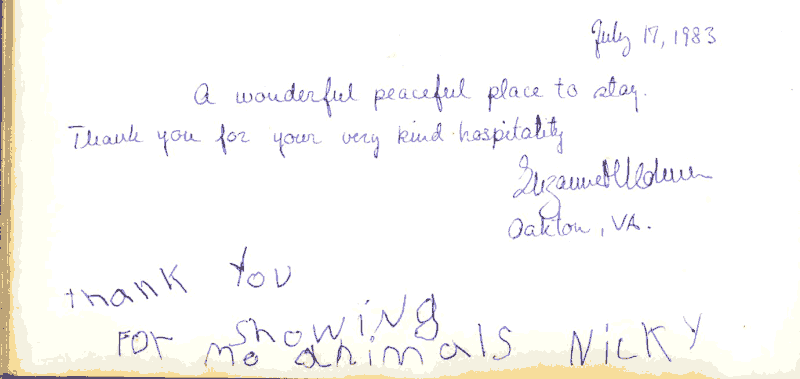 July 17, 1983
A wonderful peaceful place to stay.
Thank you for your very kind hospitality
Suzanne
Oakton, VA.
thank You
FOr showing
me animals NICKY